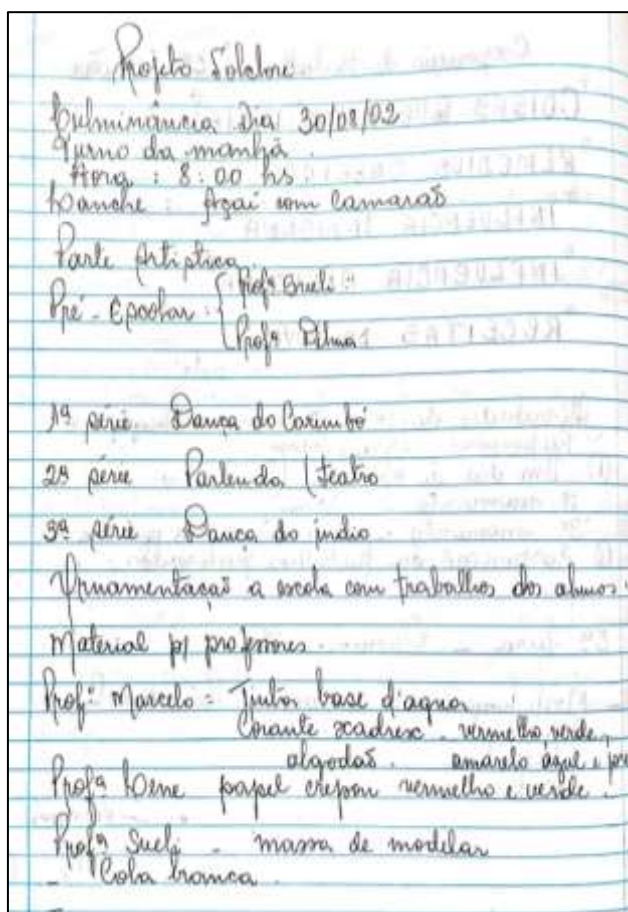 Projeto Folclore
Culminância Dia 30/08/02
Turno da manhã
Hora : 8:00 hs
Lanche : Açaí com Camarão
Parte Artistica
Pré-Escolar : Profª Sueli :
Profª Dilma
1ª série Dança do Carimbó
2ª série Parlenda / teatro
3ª série Dança do indio
Ornamentação a escola com trabalhos dos alunos
Material p/ professores
Profº Marcelo = Tinta base d'agua
Corante xadrex . vermelho verde,
algodão . amarelo ázul e
Profª Dene papel crepon vermelho e verde .
Profª Sueli - massa de modelar
- Cola branca .